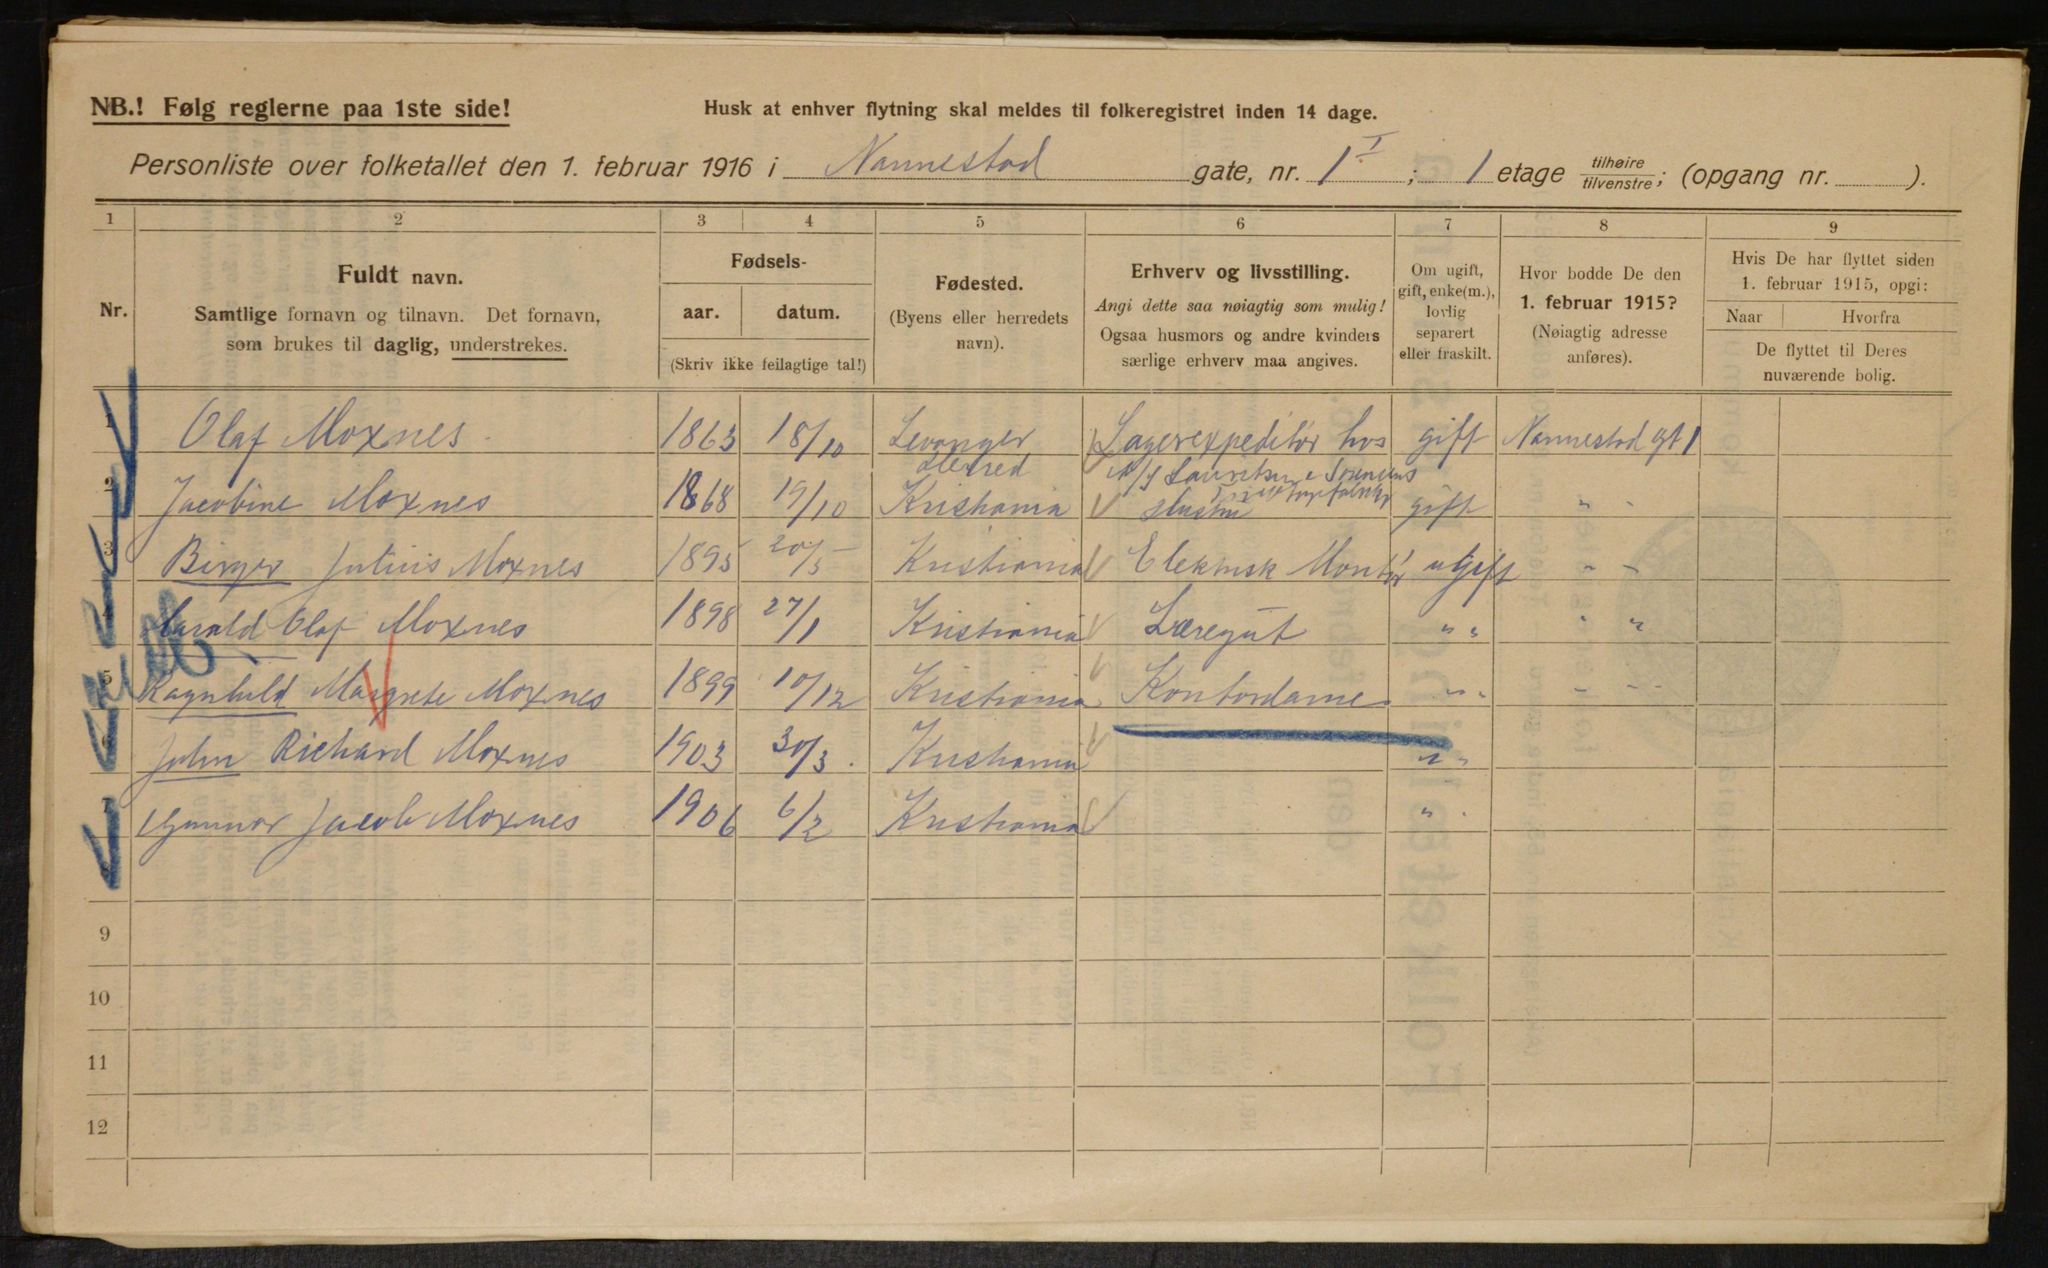 NB.! Følg reglerne paa 1ste side!
Husk at enhver flytning skal meldes til folkeregistret inden 14 dage.
Personliste over folketallet den 1. februar 1916 i Nannestad gate, nr. 1 I ; 1 etage tilhøire/tilvenstre; (opgang nr. ).
1 2 3 4 5 6 7 8 9
Nr.
Fuldt navn.
Samtlige fornavn og tilnavn. Det fornavn,
som brukes til daglig, understrekes.
Fødsels-
aar. datum.
(Skriv ikke feilagtige tal!)
Fødested.
(Byens eller herredets
navn).
Erhverv og livsstilling.
Angi dette saa nøiagtig som mulig!
Ogsaa husmors og andre kvinders
særlige erhverv maa angives.
Om ugift,
gift, enke(m.),
lovlig
separert
eller fraskilt.
Hvor bodde De den
1. februar 1915?
(Nøiagtig adresse
anføres).
Hvis De har flyttet siden
1. februar 1915, opgi:
Naar Hvorfra
De flyttet til Deres
nuværende bolig.
1 Olaf Moxnes 1863 18/10 Levanger Lagerexpeditør hos gift Nannestad gt 1
Herred A/S
2 Jacobine Moxnes 1868 19/10 Kristiania Hustru gift " "
3 Birger Julius Moxnes 1895 20/5 Kristiania Elektrisk Montør ugift " "
4 Harald Olaf Moxnes 1898 27/1 Kristiania Læregut " " " "
5 Ragnhild Margrete Moxnes 1899 10/12 Kristiania Kontordame " " " "
6 John Richard Moxnes 1903 30/3 Kristiania " "
7 Gunnar Jacob Moxnes 1906 6/2 Kristiania "
8
9
10
11
12